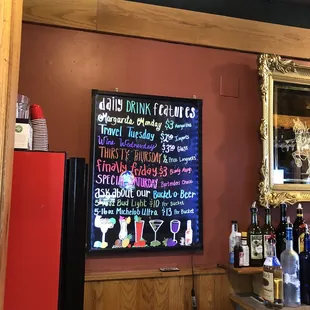 daily DRINK features
Margarita Monday $3 Margaritas
Travel Tuesday $2.50 Imports
Wine Wednesday $3.50 Glass
THIRSTY THURSDAY ½ Price Longnecks
finally friday $3 Bloody Mary
SPECIAL SATURDAY Bartenders Choice
ask about our Bucket-o-Beer
Bud Light $10 for Bucket
5-16oz Michelob Ultra $13 for Bucket